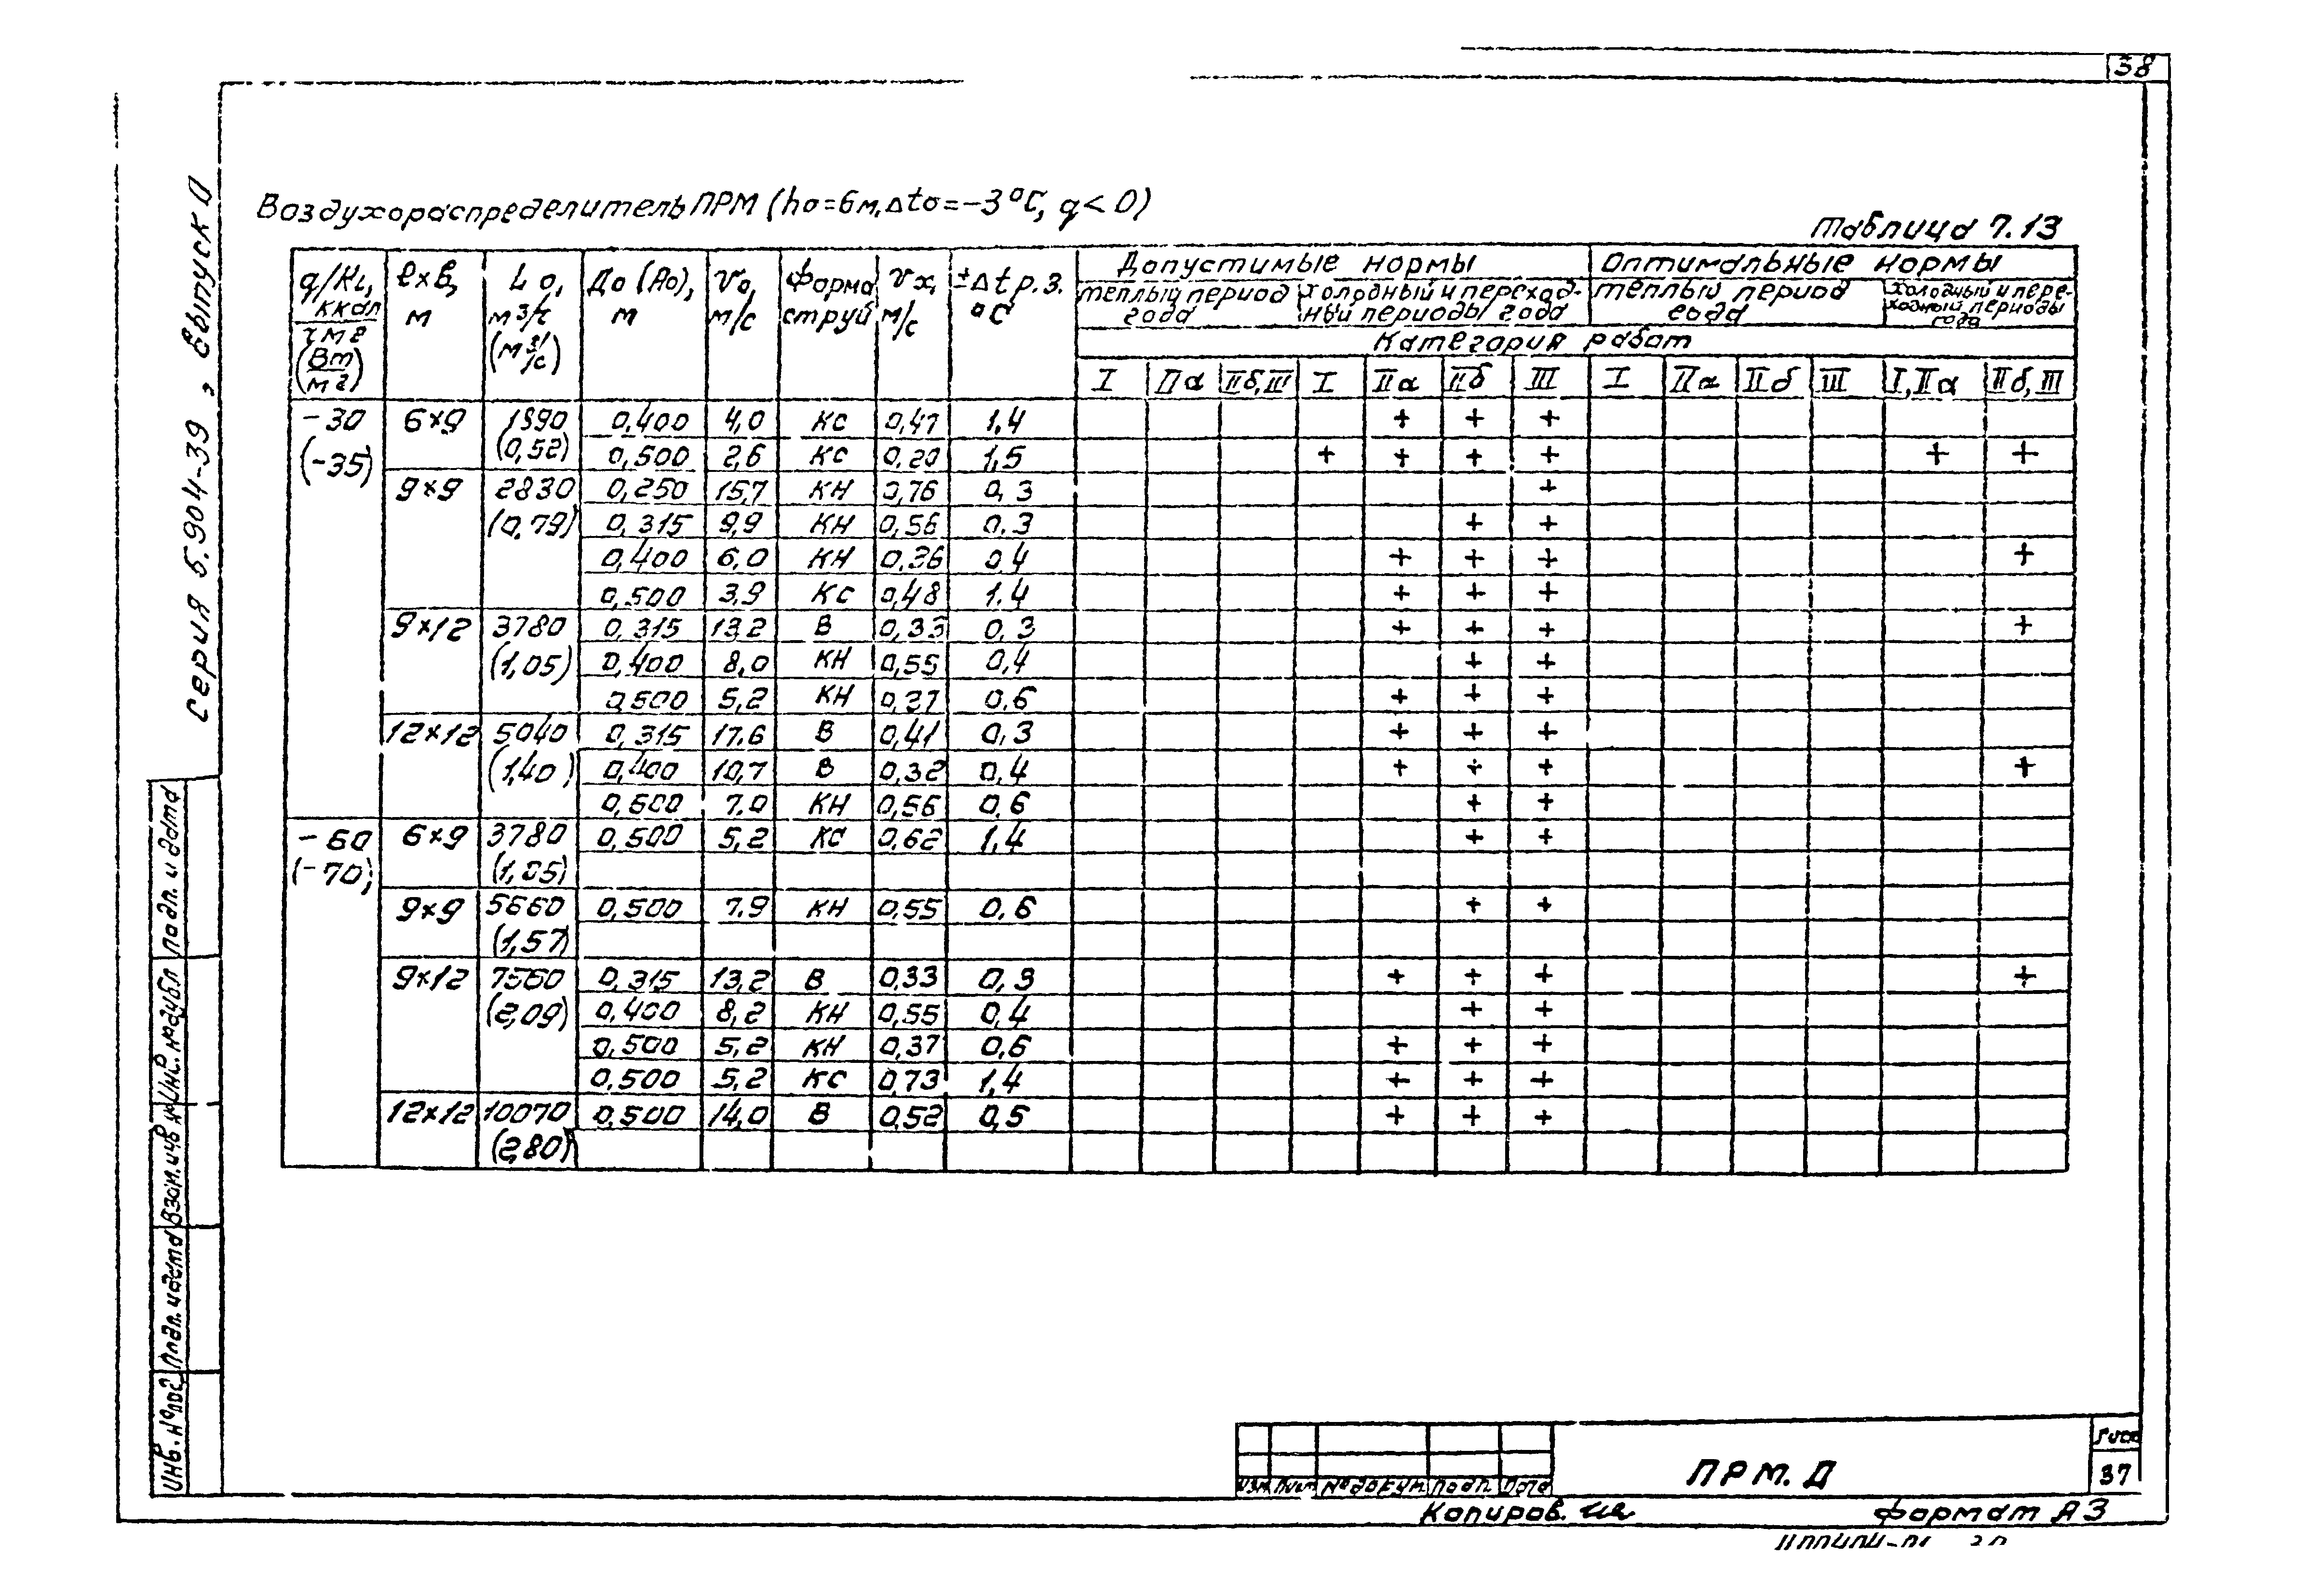 38
Серия 5.904-39, Выпуск 0
Воздухораспределитель ПРМ (hо=6м, Δtо=-3°С, q<0)
Таблица 7.13
q/KL, ккал/чм2 (Вт/м2) | ℓхВ, м | Lо, м3/ч (м3/с) | До (Ао), м | Vо, м/с | Форма струй | Vx, м/с | ±Δtр.з. °С | Допустимые нормы | Оптимальные нормы
теплый период года | холодный и переходный периоды года | теплый период года | холодный и переходный периоды года
Категория работ
I | IIа | IIб,III | I | IIа | IIб | III | I | IIа | IIб | III | I,IIа | IIб,III
-30 6х9 1890 0,400 4,0 КС 0,47 1,4 + + +
(-35) (0,52) 0,500 2,6 КС 0,20 1,5 + + + + + +
9х9 2830 0,250 15,7 КН 0,76 0,3 +
(0,79) 0,315 9,9 КН 0,56 0,3 + +
0,400 6,0 КН 0,36 0,4 + + + +
0,500 3,9 КС 0,48 1,4 + + +
9х12 3780 0,315 13,2 В 0,33 0,3 + + + +
(1,05) 0,400 8,0 КН 0,55 0,4 + +
0,500 5,2 КН 0,37 0,6 + + +
12х12 5040 0,315 17,6 В 0,41 0,3 + + +
(1,40) 0,400 10,7 В 0,32 0,4 + + + +
0,500 7,0 КН 0,56 0,6 + +
-60 6х9 3780 0,500 5,2 КС 0,62 1,4 + +
(-70) (1,05)
9х9 5660 0,500 7,9 КН 0,55 0,6 + +
(1,57)
9х12 7560 0,315 13,2 В 0,33 0,3 + + + +
(2,09) 0,400 8,2 КН 0,55 0,4 + +
0,500 5,2 КН 0,37 0,6 + + +
0,500 5,2 КС 0,73 1,4 + + +
12х12 10070 0,500 14,0 В 0,52 0,5 + + +
(2,80)
Инв. № подл.
Подп. и дата
Взам. инв. №
Инв. № дубл
Подп. и дата
Изм Лист № докум Подп. Дата
ПРМ.Д
Лист
37
Копиров.
Формат А3